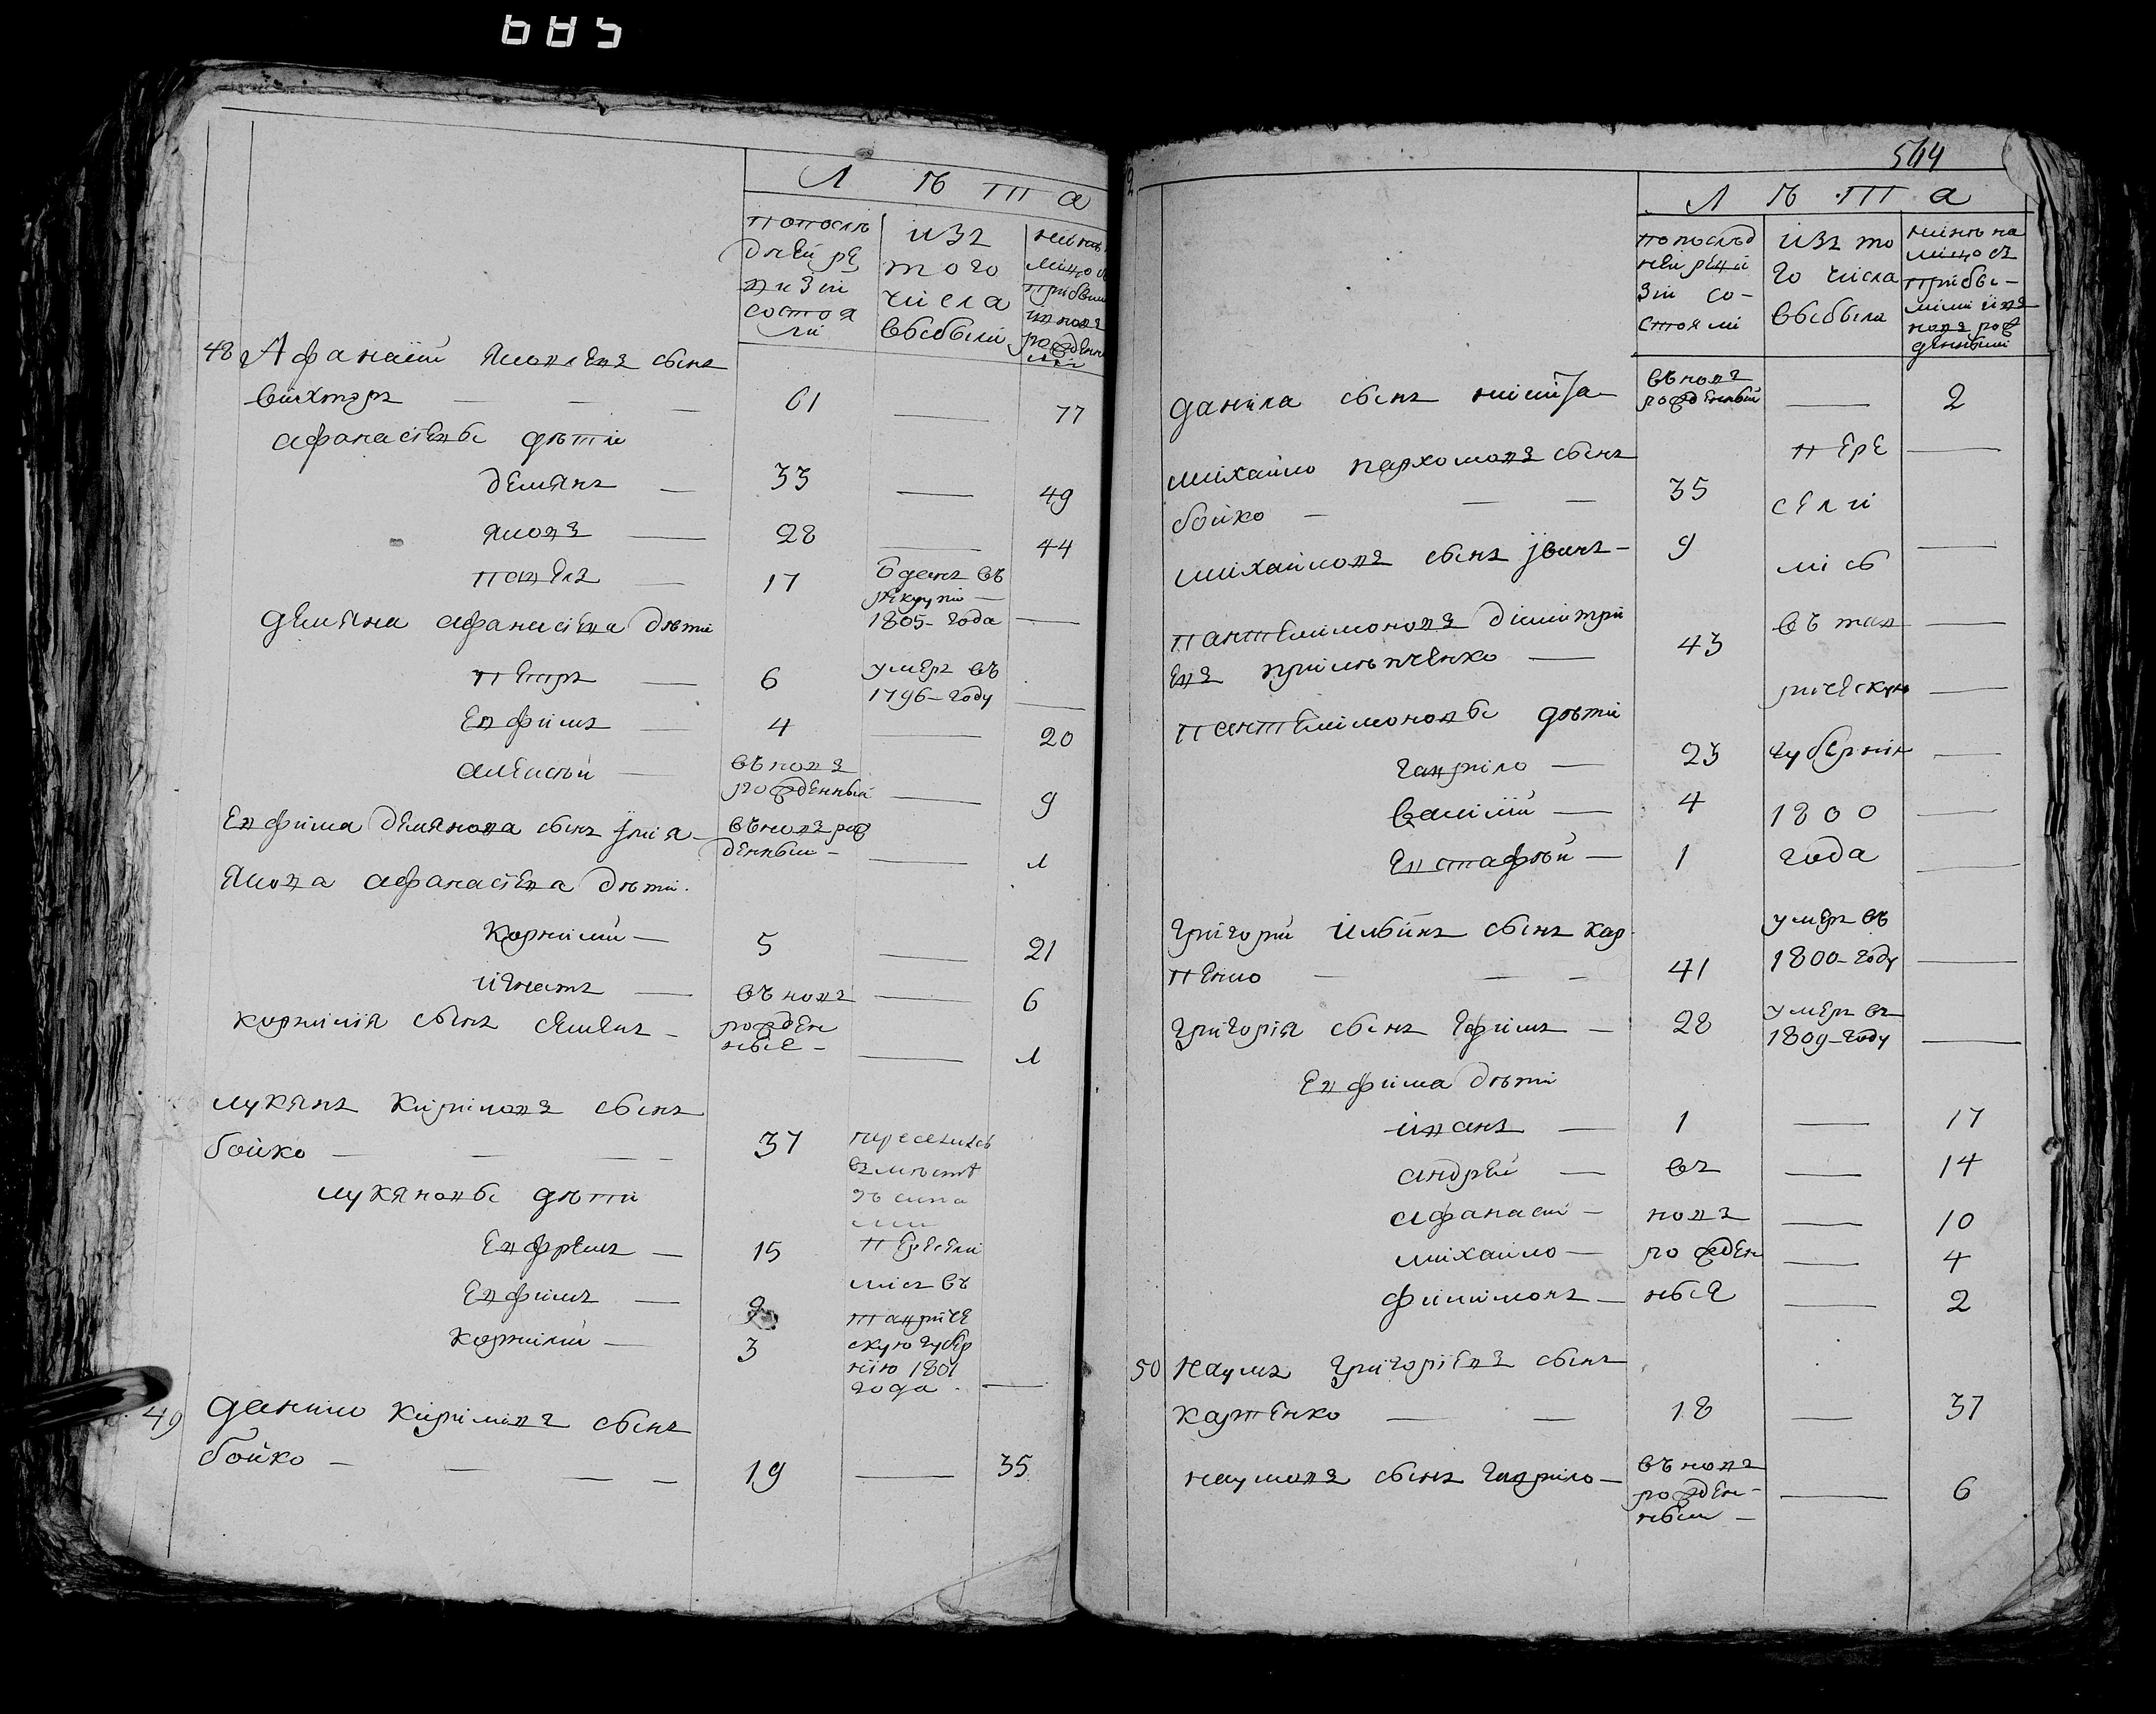 685
Л ѣ т а
по послѣ
дней ре
визіи
состоя
ли
изъ
того
числа
выбыли
нынѣ на
лицо съ
прибыли
ивновъ
рожденны
ми
48 Афанасій Яковлевъ сынъ
вихторъ — — — 61 — 77
афанасіевы дѣти
демянъ — 33 — 49
яковъ — 28 — 44
павелъ — 17 одданъ въ
рекруты —
1805-года —
демяна афанасіева дѣти
петръ — 6 умеръ въ
1796-году —
евфимъ — 4 — 20
алексѣй — въновъ
рожденный — 9
евфима демянова сынъ Ілія — въновъ рож
денный — — 1
якова афанасіева дѣти.
корнилій — 5 — 21
игнатъ — въновъ — 6
корнилія сынъ семенъ — рожден
ные — — 1
лукянъ кириловъ сынъ
бойко — — — 37 переселились
вмѣстѣ
лукяновы дѣти
евфремъ — 15 пересели
лись въ
евфимъ — 9 тавриче
корнилій — 3 скую губер
нію 1801
года. —
49 данило кириловъ сынъ
бойко — — — — 19 — 35
544
Л ѣ т а
по послѣд
ней реви
зіи со-
стояли
изъ то
го числа
выбыли
нынѣ на
лицо съ
прибы-
лими ивъ
новъ рож
денными
данила сынъ никита — въновъ
рожденный — 2
михайло пархомовъ сынъ пере —
бойко — — 35 сели
михайловъ сынъ Іванъ — 9 лись —
пантелимоновъ димитрі въ тав —
евъ — 43
рическую —
пантелимоновы дѣти
гаврило — 23 губернію —
василій — 4 1800 —
евстафѣй — 1 года —
григорій ильинъ сынъ кар умеръ въ
пенко — — — 41 1800-году —
григорія сынъ Ефимъ — 28 умеръ въ
1809-году —
евфима дѣти
иванъ — 1 — 17
андрей — въ — 14
афанасій — новъ — 10
михайло — рожден — 4
филимонъ — ные — 2
50 наумъ григоріевъ сынъ
карпенко — — 18 — 37
наумовъ сынъ гаврило — въновъ
рожден-
ный — — 6